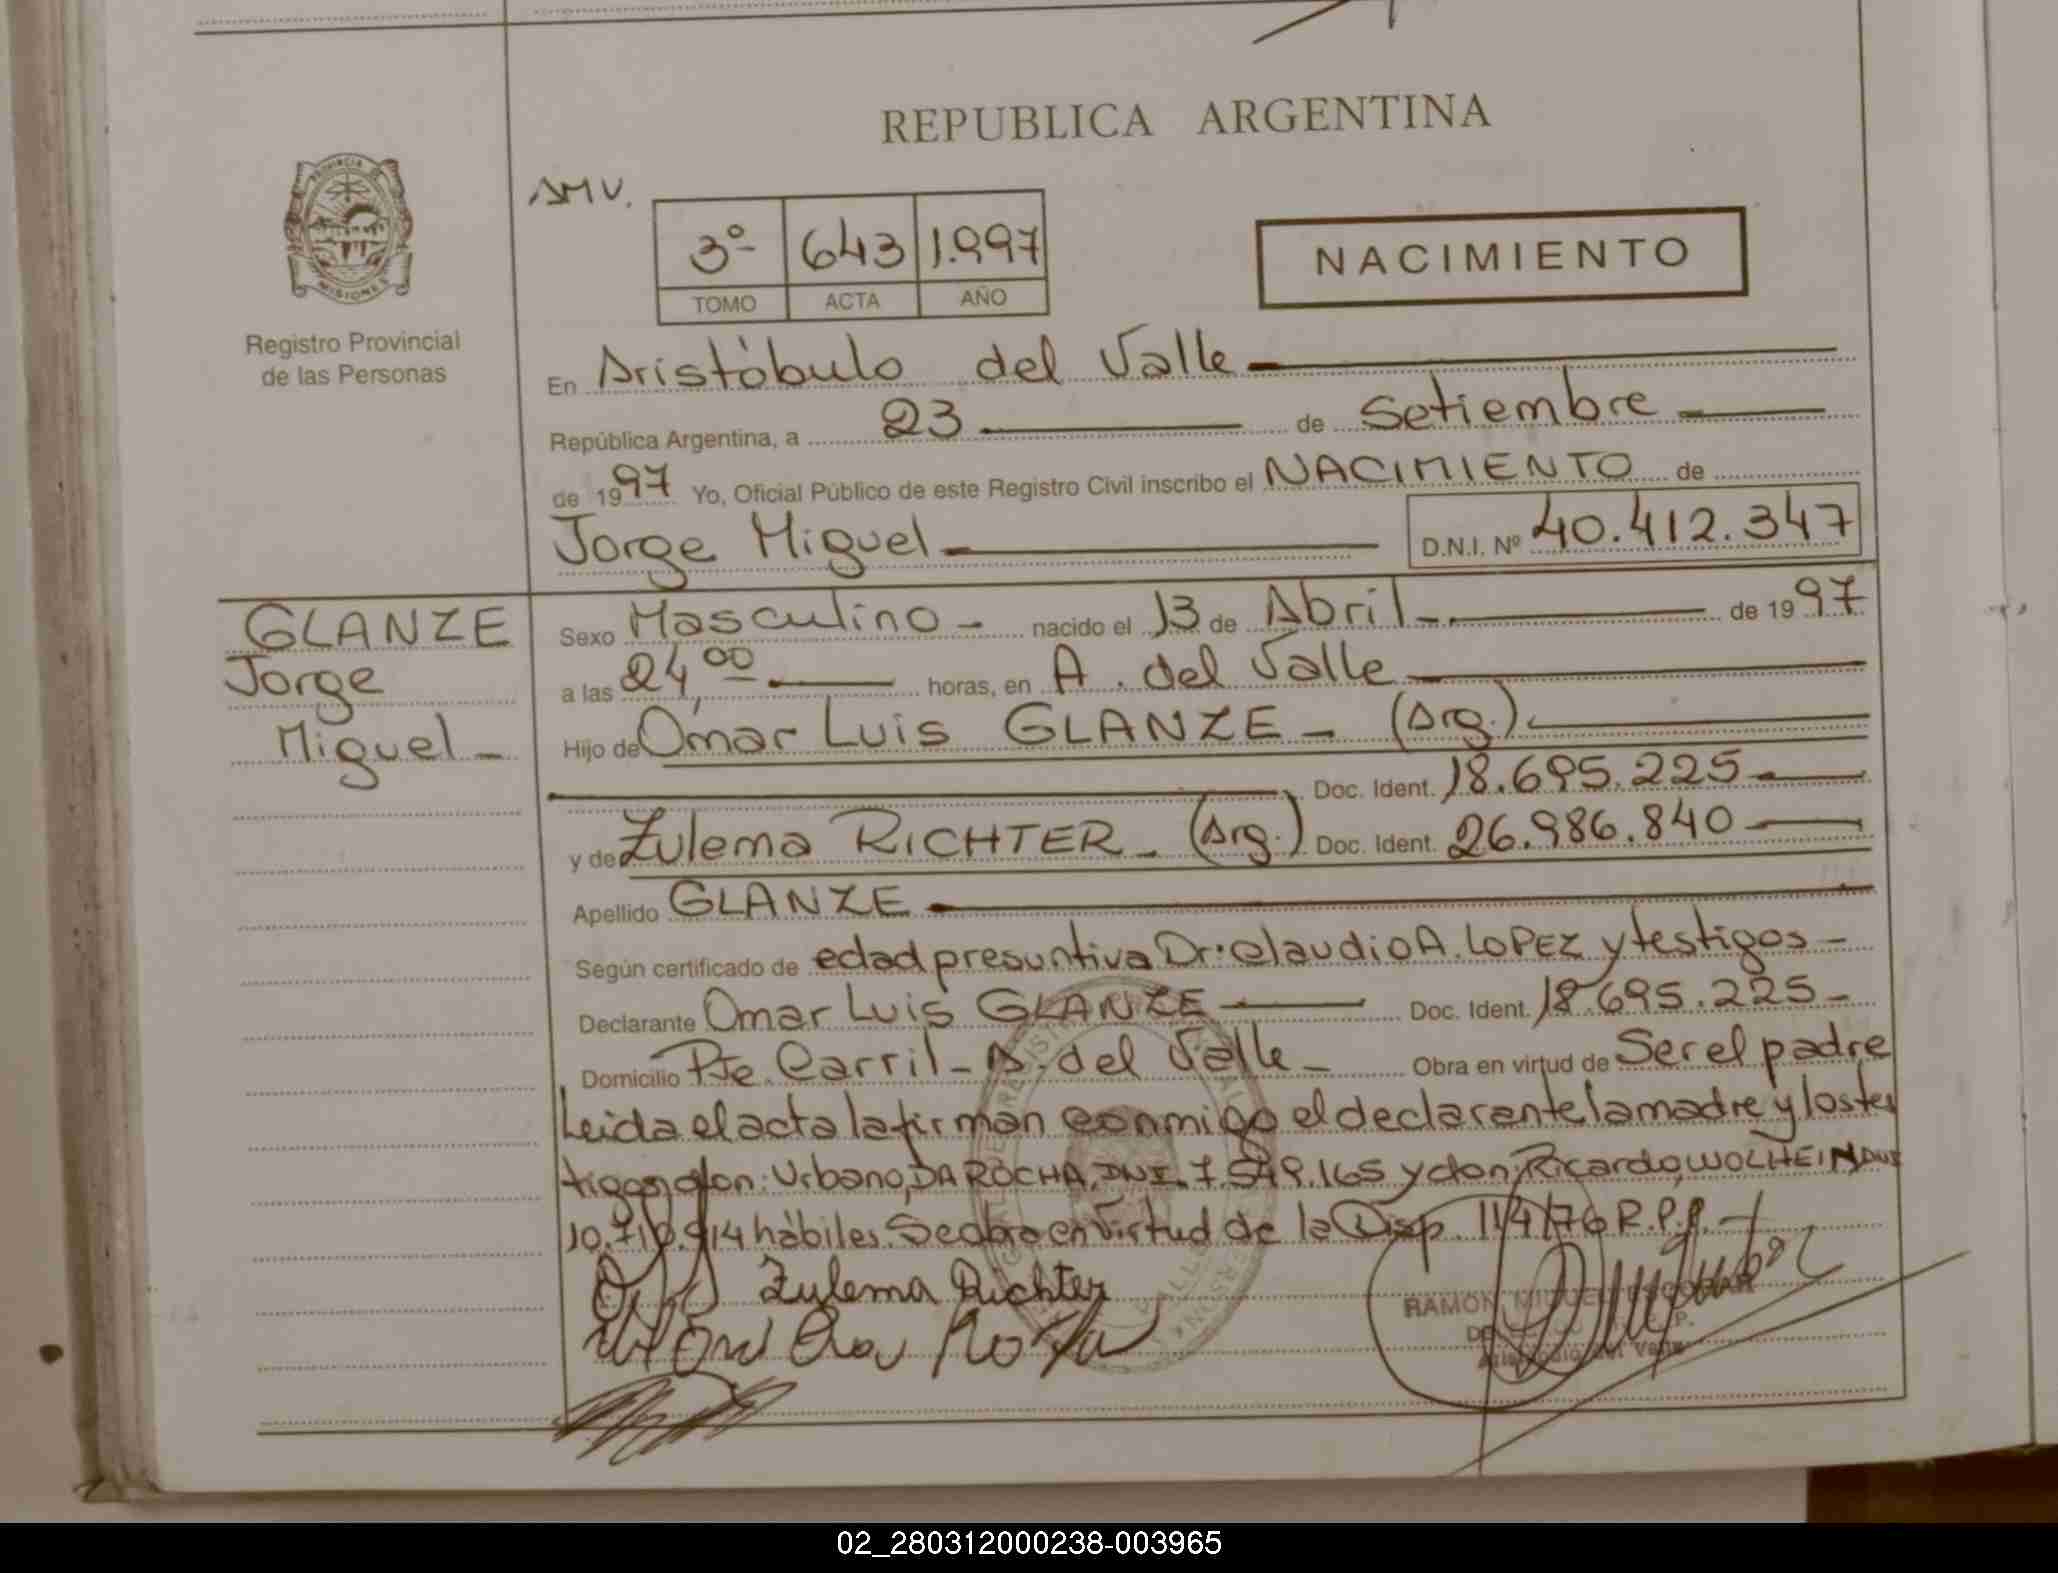 REPUBLICA ARGENTINA
PROVINCIA DE
MISIONES
Registro Provincial
de las Personas
AMV.
3º 643 1.997
TOMO ACTA AÑO
NACIMIENTO
En Aristóbulo del Valle
República Argentina, a 23 de Setiembre
de 1997 Yo, Oficial Público de este Registro Civil inscribo el NACIMIENTO de
Jorge Miguel D.N.I. Nº 40.412.347
GLANZE
Jorge
Miguel
Sexo Masculino nacido el 13 de Abril de 1997
a las 24,00 horas, en A. del Valle
Hijo de Omar Luis GLANZE (Arg.)
Doc. Ident. 18.695.225
y de Zulema RICHTER (Arg.) Doc. Ident. 26.986.840
Apellido GLANZE
Según certificado de edad presuntiva Dr: Claudio A. LOPEZ y testigos
Declarante Omar Luis GLANZE Doc. Ident. 18.695.225
Domicilio Pje. Carril A. del Valle Obra en virtud de Ser el padre
Leida el acta la firman conmigo el declarante la madre y los tes
tigos don: Urbano, DA ROCHA, DNI. 7.549.165 y don: Ricardo, WOLHEIN DNI
hábiles. Se obra en Virtud de la Disp. 114/76 R.P.P.
Zulema Richter
RAMON MIGUEL ESCOBAR
Aristobulo del Valle
02_280312000238-003965